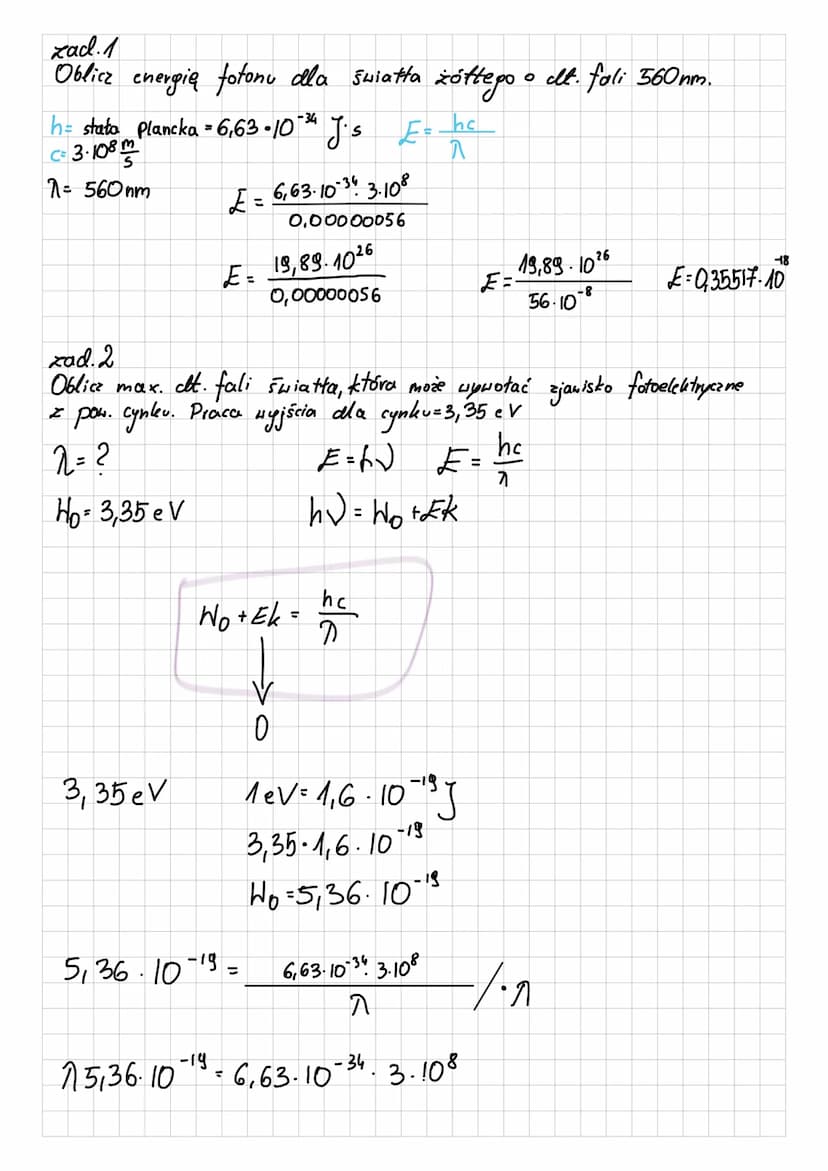 zad.1
Oblicz energię fotonu dla światła żółtego o dł. fali 560nm.
h= stała Plancka = 6,63 • 10^-34 J·s E = hc/λ
c= 3·10^8 m/s
λ = 560nm E = 6,63·10^-34 · 3·10^8 / 0,00000056
E = 19,89·10^26 / 0,00000056 E = 19,89·10^26 / 56·10^-8 E=0,35517·10^-18
zad.2
Oblicz max. dł. fali światła, która może wywołać zjawisko fotoelektryczne
z pow. cynku. Praca wyjścia dla cynku=3,35 eV
λ = ? E = hν E = hc/λ
W₀ = 3,35 eV hν = W₀ + Ek
W₀ + Ek = hc/λ
↓
0
3,35 eV 1eV = 1,6 · 10^-19 J
3,35 • 1,6 · 10^-19
W₀ = 5,36 · 10^-19
5,36 · 10^-19 = 6,63·10^-34 · 3·10^8 / λ /·λ
λ 5,36·10^-19 = 6,63·10^-34 · 3·10^8